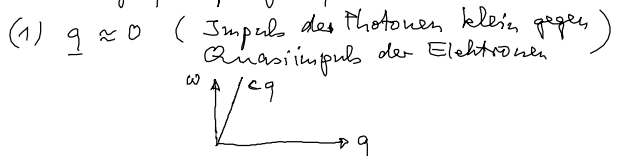 (1) q ≈ 0 ( Impuls der Photonen klein gegen
Quasiimpuls der Elektronen )
ω cq
q